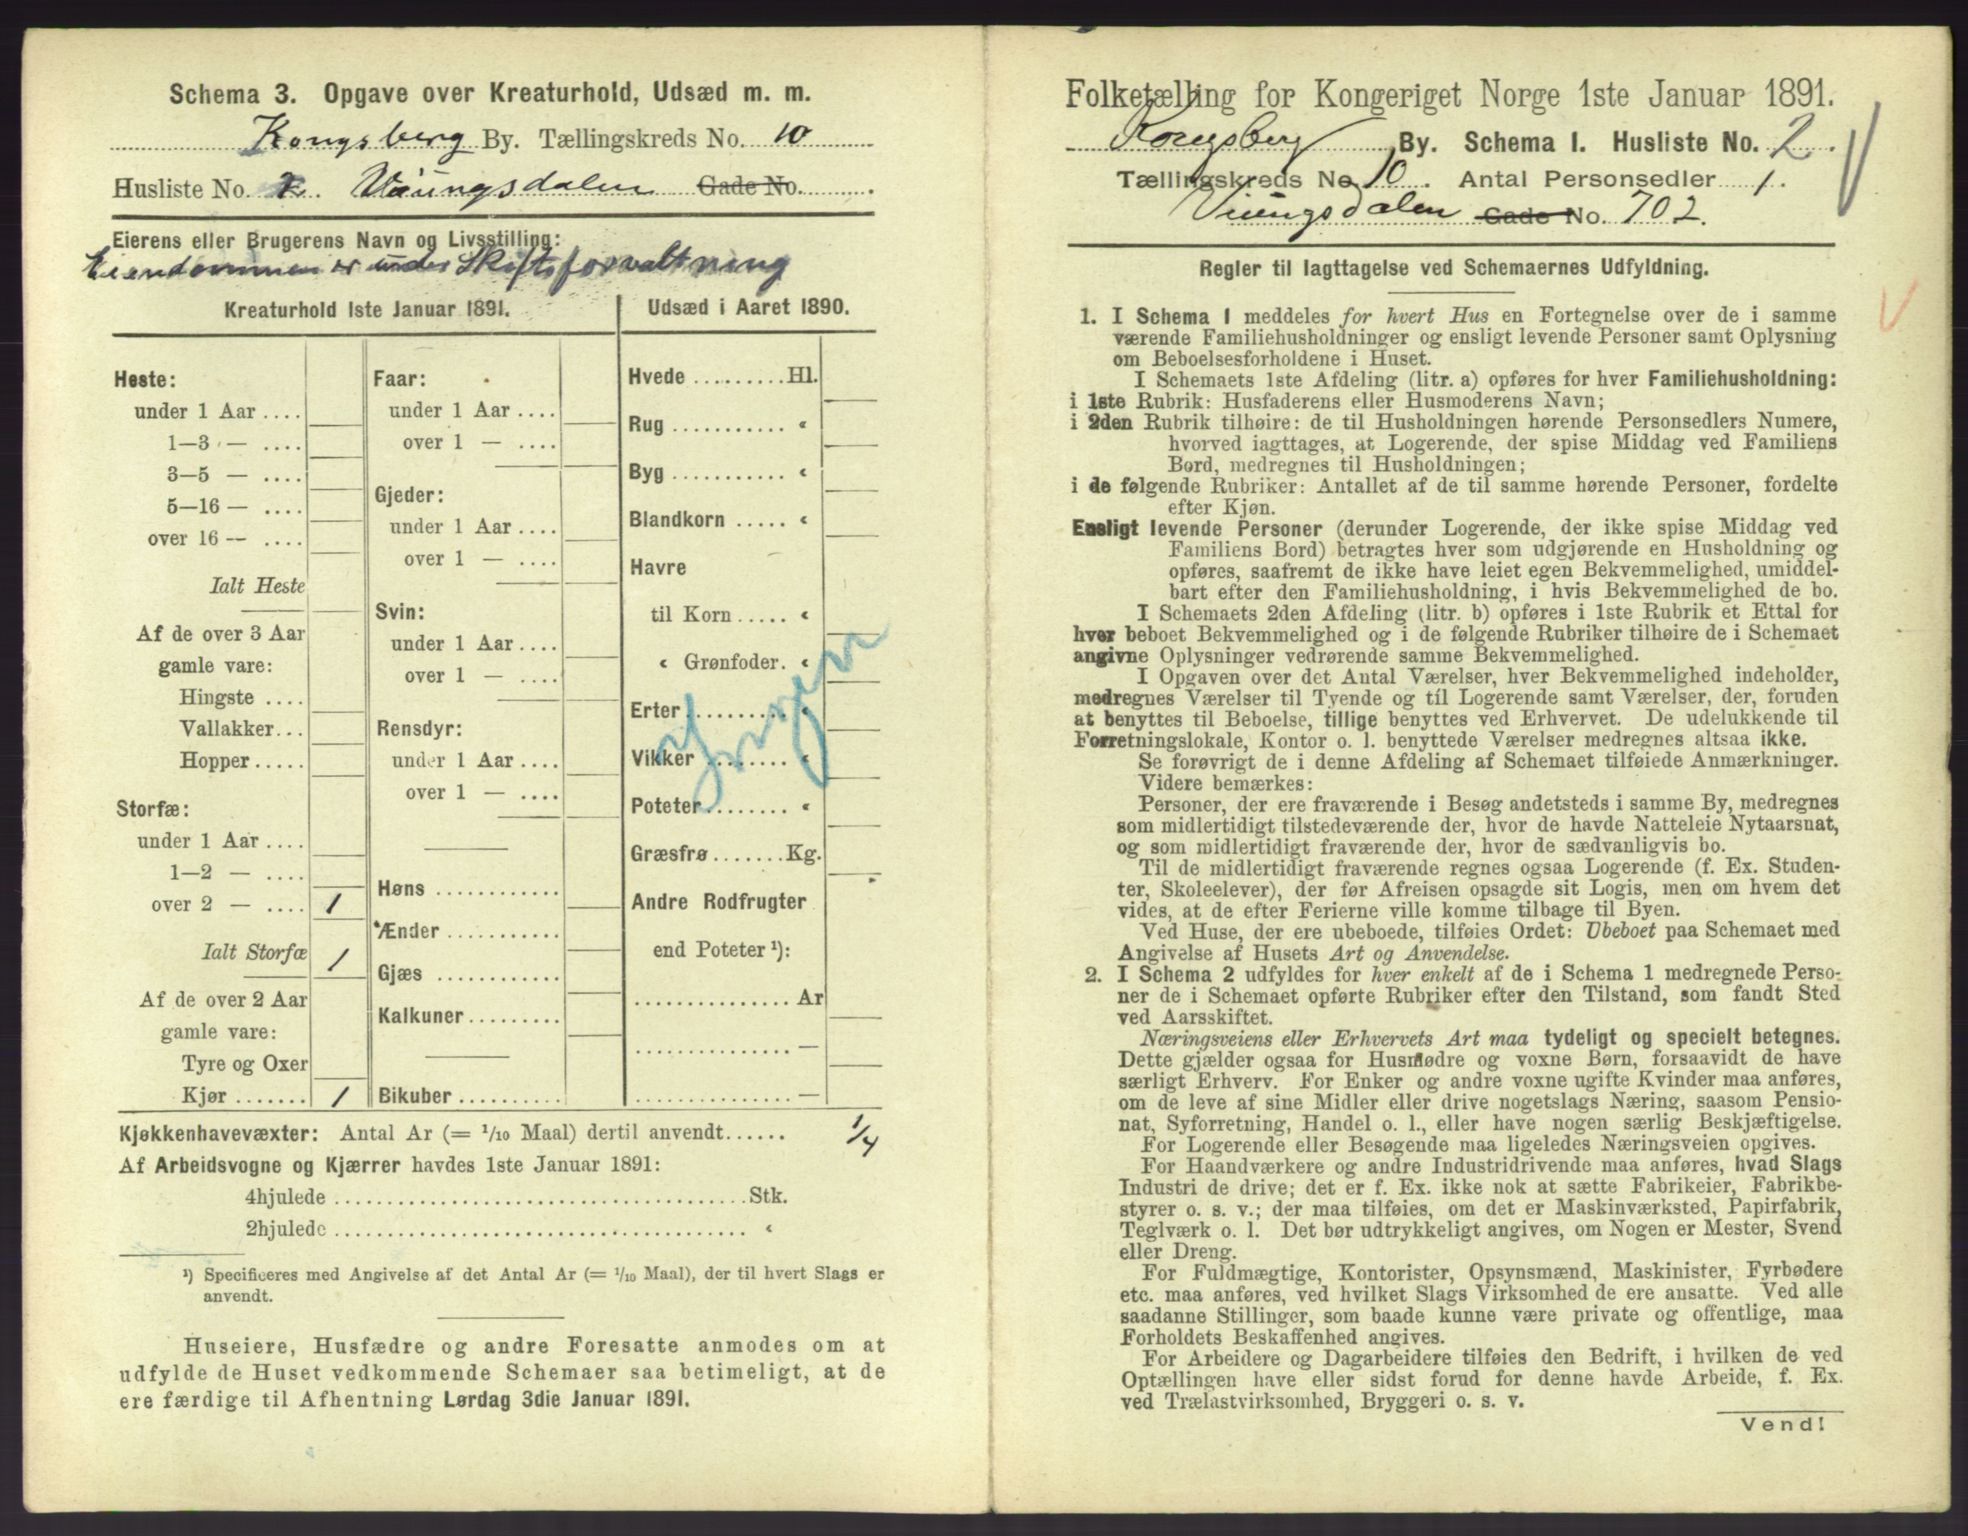 Schema 3. Opgave over Kreaturhold, Udsæd m. m.
Kongsberg By. Tællingskreds No. 10
Husliste No. 2. Væungsdalen Gade No.
Eierens eller Brugerens Navn og Livsstilling:
Eiendommen er under Skiftsforvaltning
Kreaturhold 1ste Januar 1891.
Heste:
under 1 Aar ....
1—3 — ....
3—5 — ....
5—16 — ....
over 16 — ....
Ialt Heste
Af de over 3 Aar
gamle vare:
Hingste ....
Vallakker...
Hopper.....
Storfæ:
under 1 Aar ....
1—2 — ....
over 2 — .... 1
Ialt Storfæ 1
Af de over 2 Aar
gamle vare:
Tyre og Oxer
Kjør ....... 1
Faar:
under 1 Aar ....
over 1 — ....
Gjeder:
under 1 Aar ....
over 1 — ....
Svin:
under 1 Aar ....
over 1 — ....
Rensdyr:
under 1 Aar ....
over 1 — ....
Høns ............
Ænder ...........
Gjæs ............
Kalkuner.........
Bikuber ..........
Udsæd i Aaret 1890.
Hvede .........Hl.
Rug ........... «
Byg ........... «
Blandkorn ..... «
Havre
til Korn ..... «
« Grønfoder. «
Erter ......... «
Vikker ........ «
Poteter........ «
Græsfrø.......Kg.
Andre Rodfrugter
end Poteter ¹):
............... Ar
............... —
............... —
Ingen
Kjøkkenhavevæxter: Antal Ar (= 1/10 Maal) dertil anvendt...... 1/4
Af Arbeidsvogne og Kjærrer havdes 1ste Januar 1891:
4hjulede ........................................Stk.
2hjulede ........................................ «
¹) Specificeres med Angivelse af det Antal Ar (= 1/10 Maal), der til hvert Slags er
anvendt.
Huseiere, Husfædre og andre Foresatte anmodes om at
udfylde de Huset vedkommende Schemaer saa betimeligt, at de
ere færdige til Afhentning Lørdag 3die Januar 1891.
Folketælling for Kongeriget Norge 1ste Januar 1891.
Kongsberg By. Schema 1. Husliste No. 2.
Tællingskreds No 10. Antal Personsedler 1.
Væungsdalen Gade No. 702.
Regler til Iagttagelse ved Schemaernes Udfyldning.
1. I Schema 1 meddeles for hvert Hus en Fortegnelse over de i samme
værende Familiehusholdninger og ensligt levende Personer samt Oplysning
om Beboelsesforholdene i Huset.
I Schemaets 1ste Afdeling (litr. a) opføres for hver Familiehusholdning:
i 1ste Rubrik: Husfaderens eller Husmoderens Navn;
i 2den Rubrik tilhøire: de til Husholdningen hørende Personsedlers Numere,
hvorved iagttages, at Logerende, der spise Middag ved Familiens
Bord, medregnes til Husholdningen;
i de følgende Rubriker: Antallet af de til samme hørende Personer, fordelte
efter Kjøn.
Ensligt levende Personer (derunder Logerende, der ikke spise Middag ved
Familiens Bord) betragtes hver som udgjørende en Husholdning og
opføres, saafremt de ikke have leiet egen Bekvemmelighed, umiddel-
bart efter den Familiehusholdning, i hvis Bekvemmelighed de bo.
I Schemaets 2den Afdeling (litr. b) opføres i 1ste Rubrik et Ettal for
hver beboet Bekvemmelighed og i de følgende Rubriker tilhøire de i Schemaet
angivne Oplysninger vedrørende samme Bekvemmelighed.
I Opgaven over det Antal Værelser, hver Bekvemmelighed indeholder,
medregnes Værelser til Tyende og til Logerende samt Værelser, der, foruden
at benyttes til Beboelse, tillige benyttes ved Erhvervet. De udelukkende til
Forretningslokale, Kontor o. l. benyttede Værelser medregnes altsaa ikke.
Se forøvrigt de i denne Afdeling af Schemaet tilføiede Anmærkninger.
Videre bemærkes:
Personer, der ere fraværende i Besøg andetsteds i samme By, medregnes
som midlertidigt tilstedeværende der, hvor de havde Natteleie Nytaarsnat,
og som midlertidigt fraværende der, hvor de sædvanligvis bo.
Til de midlertidigt fraværende regnes ogsaa Logerende (f. Ex. Studen-
ter, Skoleelever), der før Afreisen opsagde sit Logis, men om hvem det
vides, at de efter Ferierne ville komme tilbage til Byen.
Ved Huse, der ere ubeboede, tilføies Ordet: Ubeboet paa Schemaet med
Angivelse af Husets Art og Anvendelse.
2. I Schema 2 udfyldes for hver enkelt af de i Schema 1 medregnede Perso-
ner de i Schemaet opførte Rubriker efter den Tilstand, som fandt Sted
ved Aarsskiftet.
Næringsveiens eller Erhvervets Art maa tydeligt og specielt betegnes.
Dette gjælder ogsaa for Husmødre og voxne Børn, forsaavidt de have
særligt Erhverv. For Enker og andre voxne ugifte Kvinder maa anføres,
om de leve af sine Midler eller drive nogetslags Næring, saasom Pensio-
nat, Syforretning, Handel o. l., eller have nogen særlig Beskjæftigelse.
For Logerende eller Besøgende maa ligeledes Næringsveien opgives.
For Haandværkere og andre Industridrivende maa anføres, hvad Slags
Industri de drive; det er f. Ex. ikke nok at sætte Fabrikeier, Fabrikbe-
styrer o. s. v.; der maa tilføies, om det er Maskinværksted, Papirfabrik,
Teglværk o. l. Det bør udtrykkeligt angives, om Nogen er Mester, Svend
eller Dreng.
For Fuldmægtige, Kontorister, Opsynsmænd, Maskinister, Fyrbødere
etc. maa anføres, ved hvilket Slags Virksomhed de ere ansatte. Ved alle
saadanne Stillinger, som baade kunne være private og offentlige, maa
Forholdets Beskaffenhed angives.
For Arbeidere og Dagarbeidere tilføies den Bedrift, i hvilken de ved
Optællingen have eller sidst forud for denne havde Arbeide, f. Ex.
ved Trælastvirksomhed, Bryggeri o. s. v.
Vend!